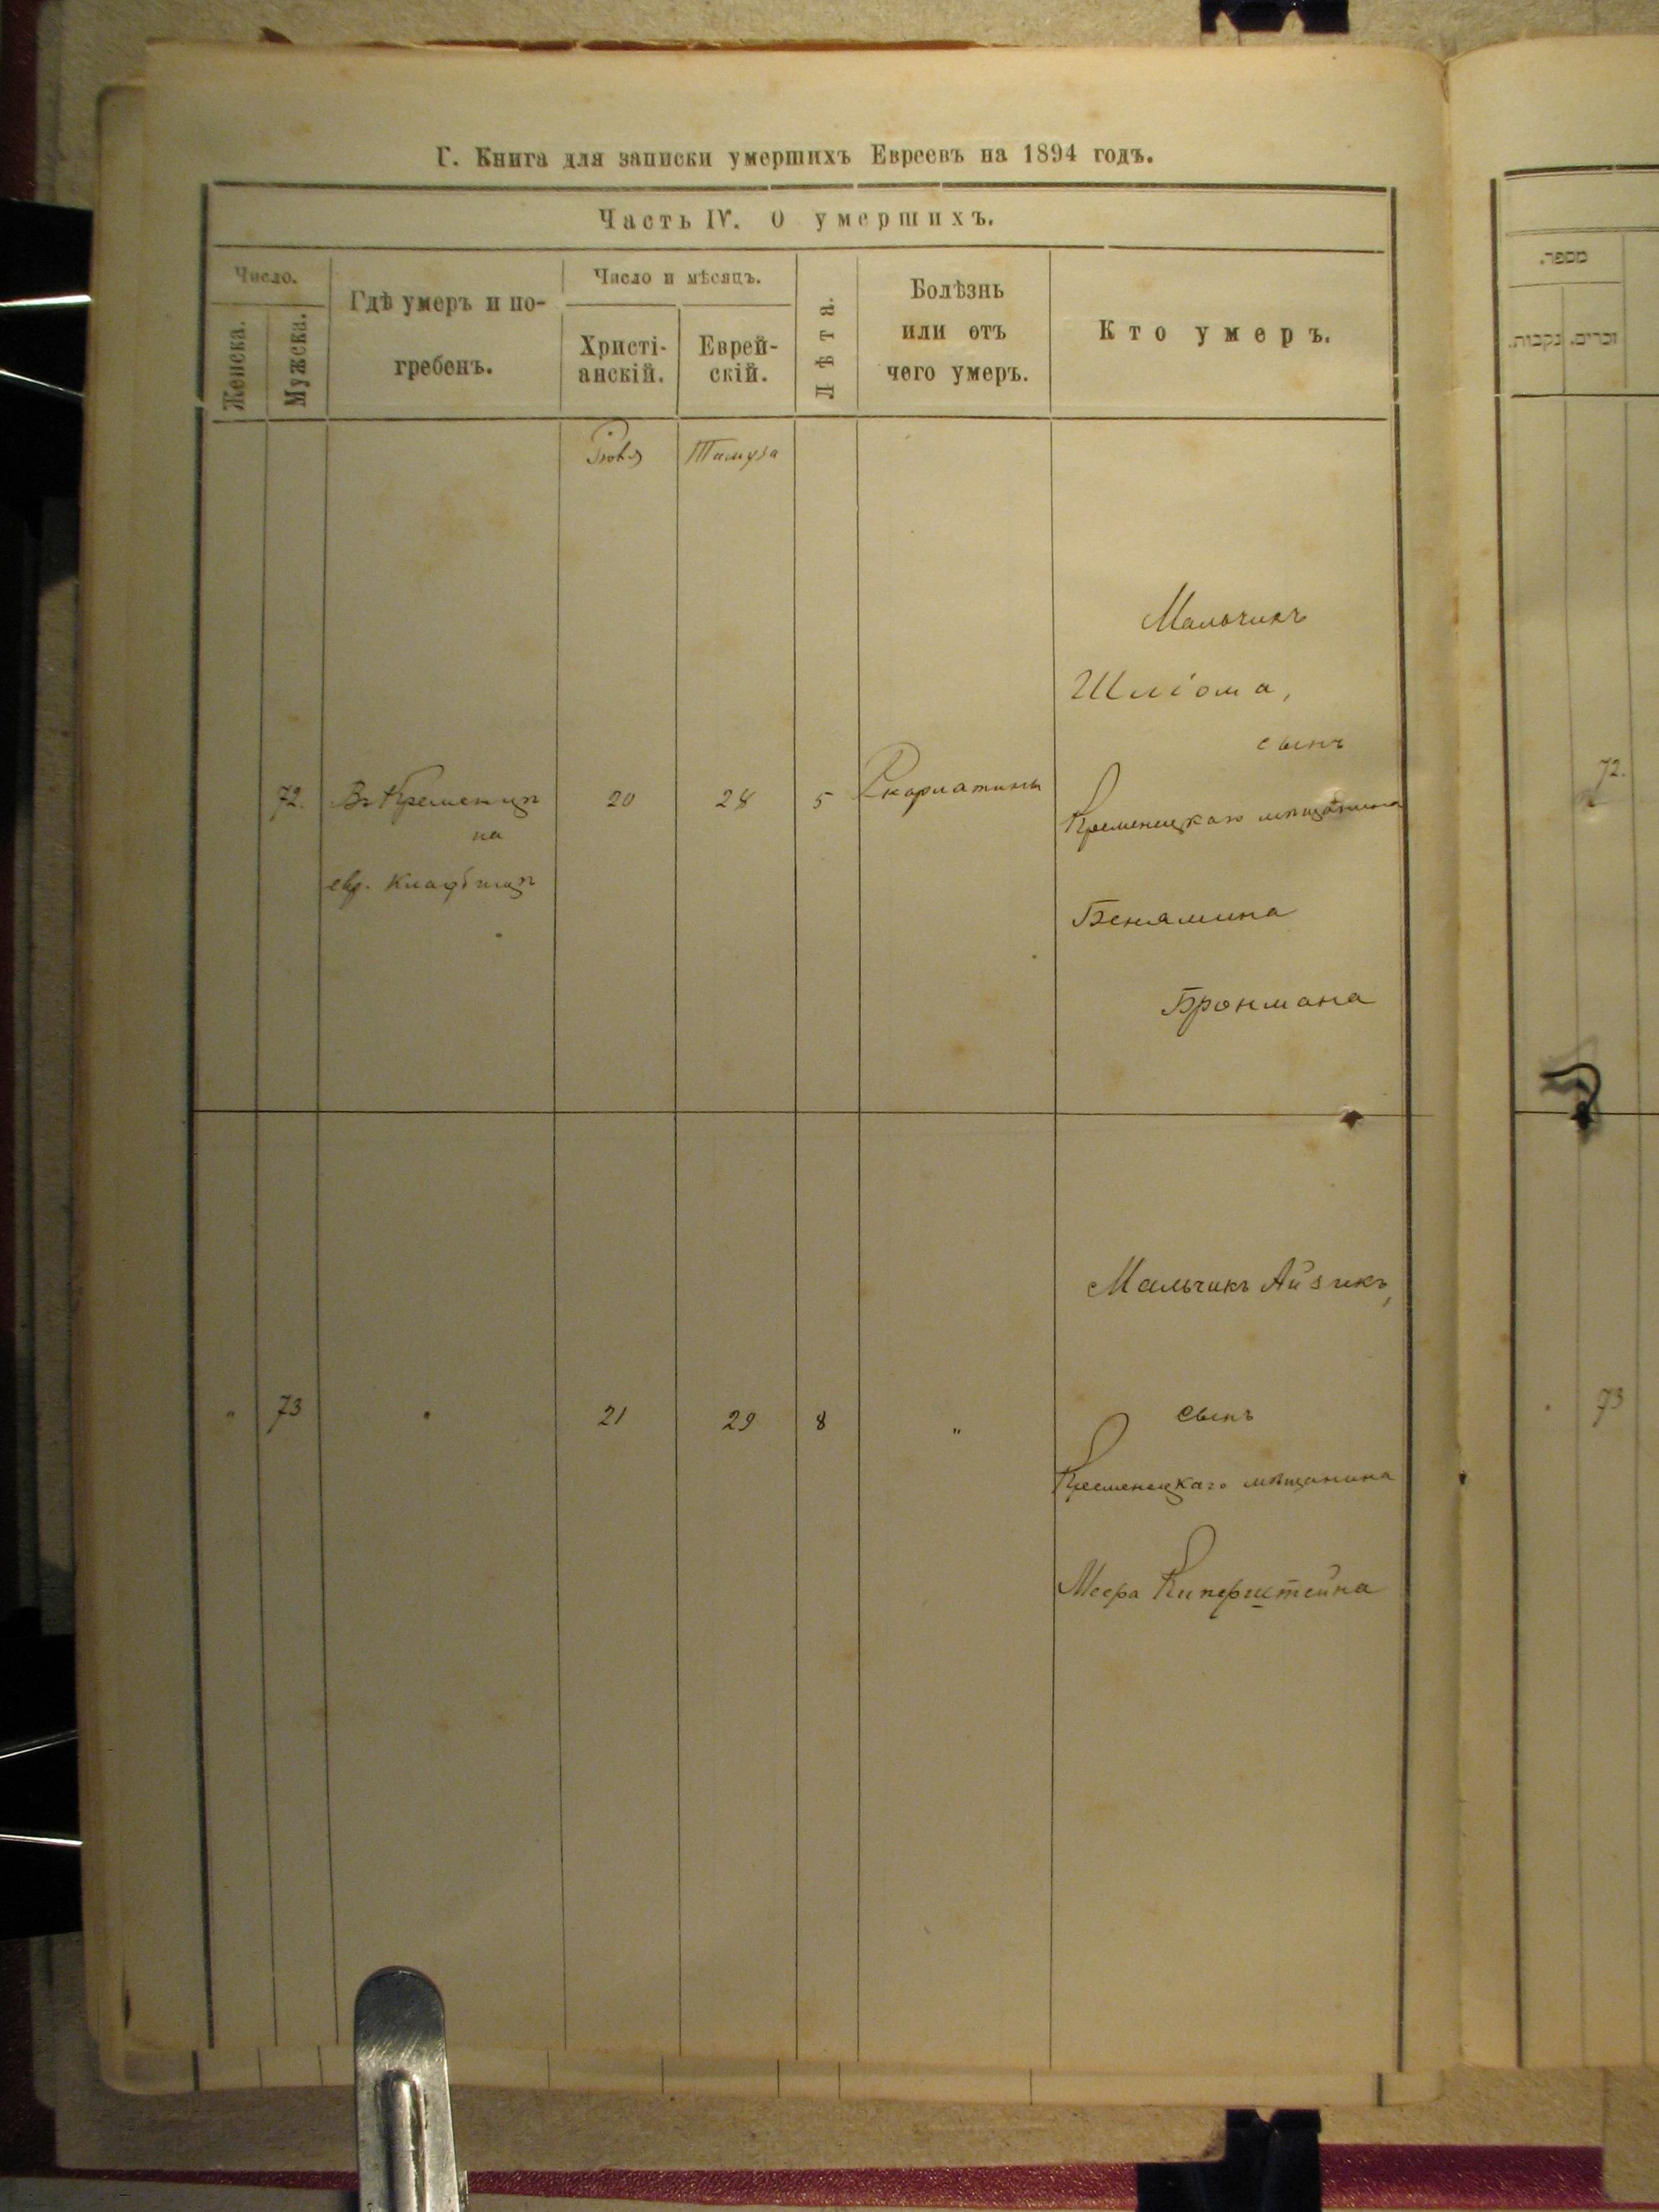 Г. Книга для записки умершихъ Евреевъ на 1894 годъ.
Часть IV. О умершихъ.
Число.
Женска.
Мужска.
Гдѣ умеръ и по-
гребенъ.
Число и мѣсяцъ.
Христі-
анскій.
Еврей-
скій.
Лѣта.
Болѣзнь
или отъ
чего умеръ.
Кто умеръ.
Іюля
Тамуза
72.
Въ Кременцѣ
на
евр. кладбищѣ
20
28
5
Скарлатины
Мальчикъ
Шліома,
сынъ
Кременецкаго мѣщанина
Бенямина
Бронмана
" 73 " 21 29 8 "
Мальчикъ Айзикъ,
сынъ
Кременецкаго мѣщанина
Меера Киперштейна
מספר.
נקבות.
זכרים.
72.
" 73